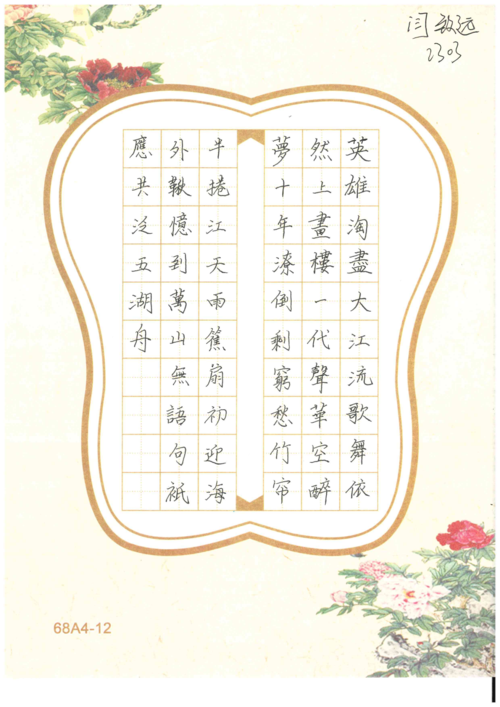 闫敬远
2303
英雄淘盡大江流歌舞依
然上畫樓一代聲華空醉
夢十年潦倒剩窮愁竹帘
半捲江天雨篛扇初迎海
外鞦憶到萬山無語句祇
應共泛五湖舟
68A4-12